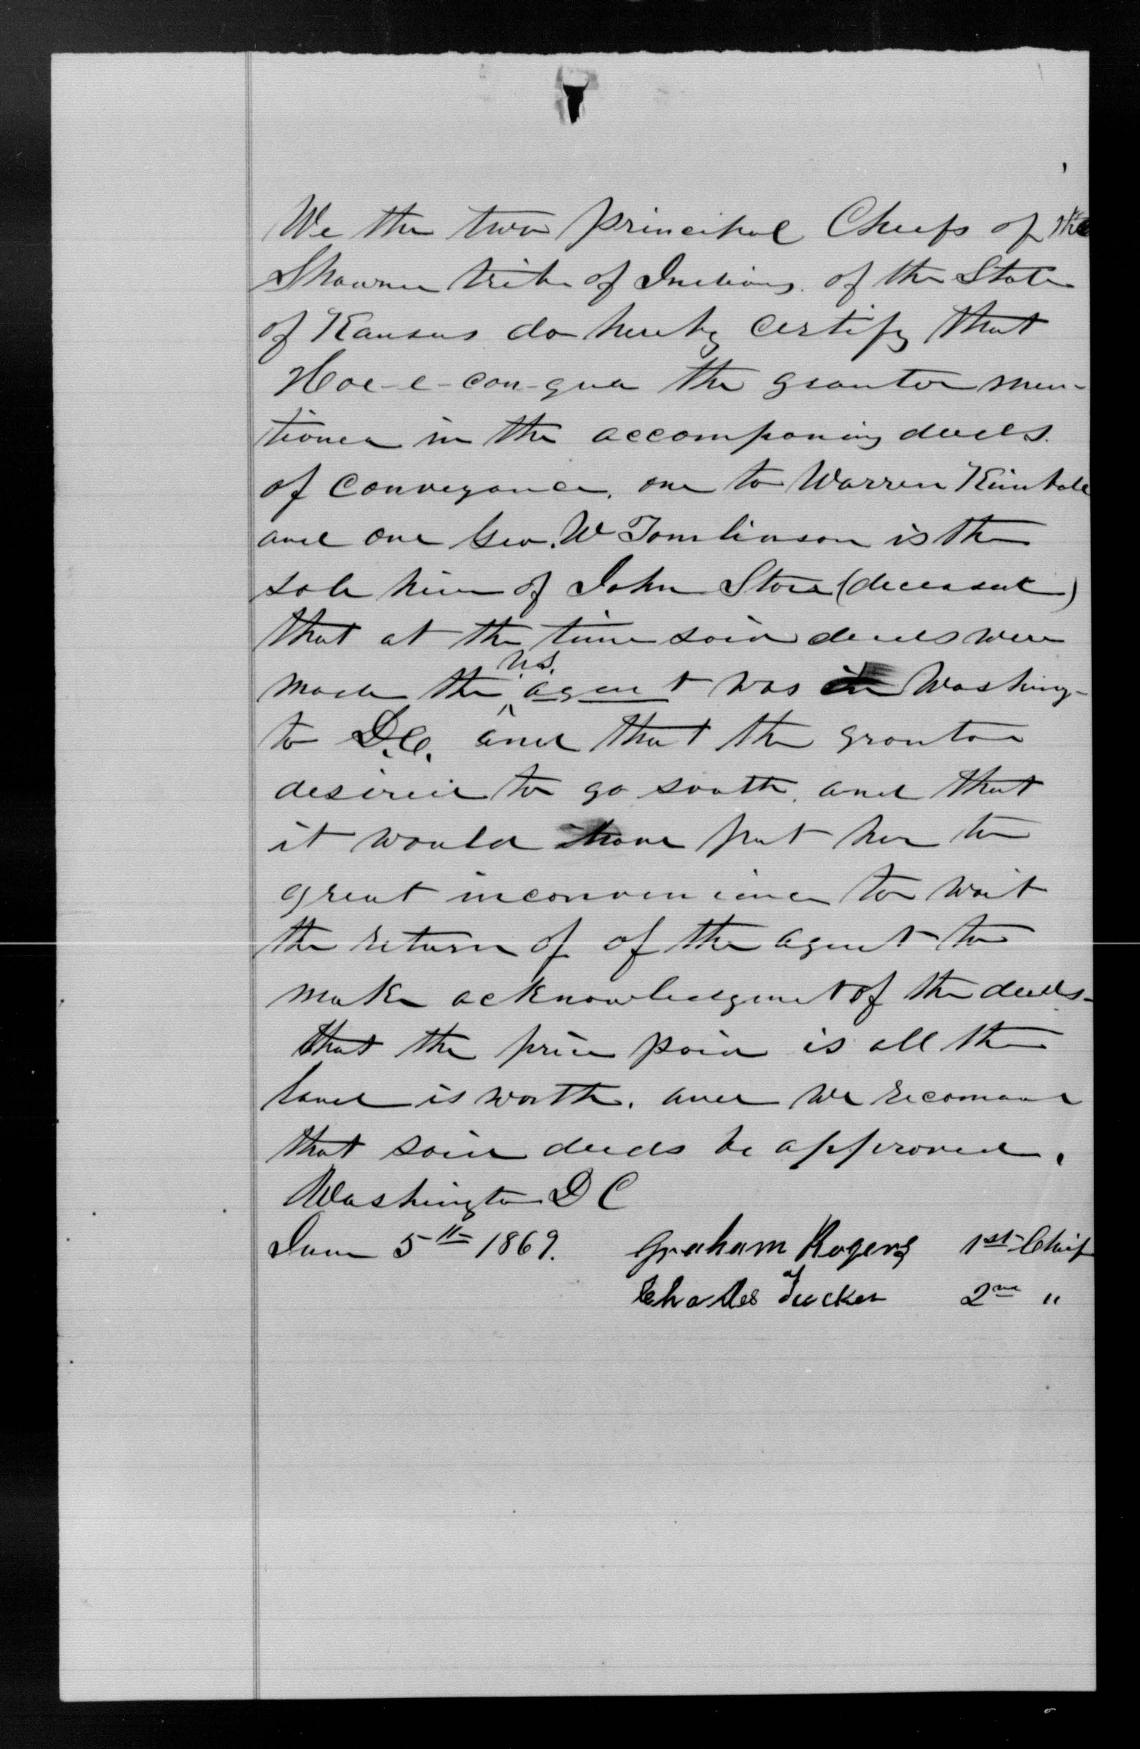 We the two principal Chiefs of the
Shawnee tribe of Indians of the State
of Kansas do hereby certify that
Hoe-e-con-qua the grantor men-
tioned in the accompaning deeds
of conveyance, one to Warren Kimball
and one Geo. W Tomlinson is the
sole heir of John Stora (deceased)
that at the time said deeds were
made the U.S. agent was in Washing-
to D.C. and that the grantor
desired to go south, and that
it would have put her to
great inconvenience to wait
the return of of the agent to
make acknowledgment of the deeds-
that the price paid is all the
land is worth. and we recomand
that said deeds be approved.
Washington D C
June 5th 1869. Graham Rogers 1st Chief
Charles Tucker 2nd "